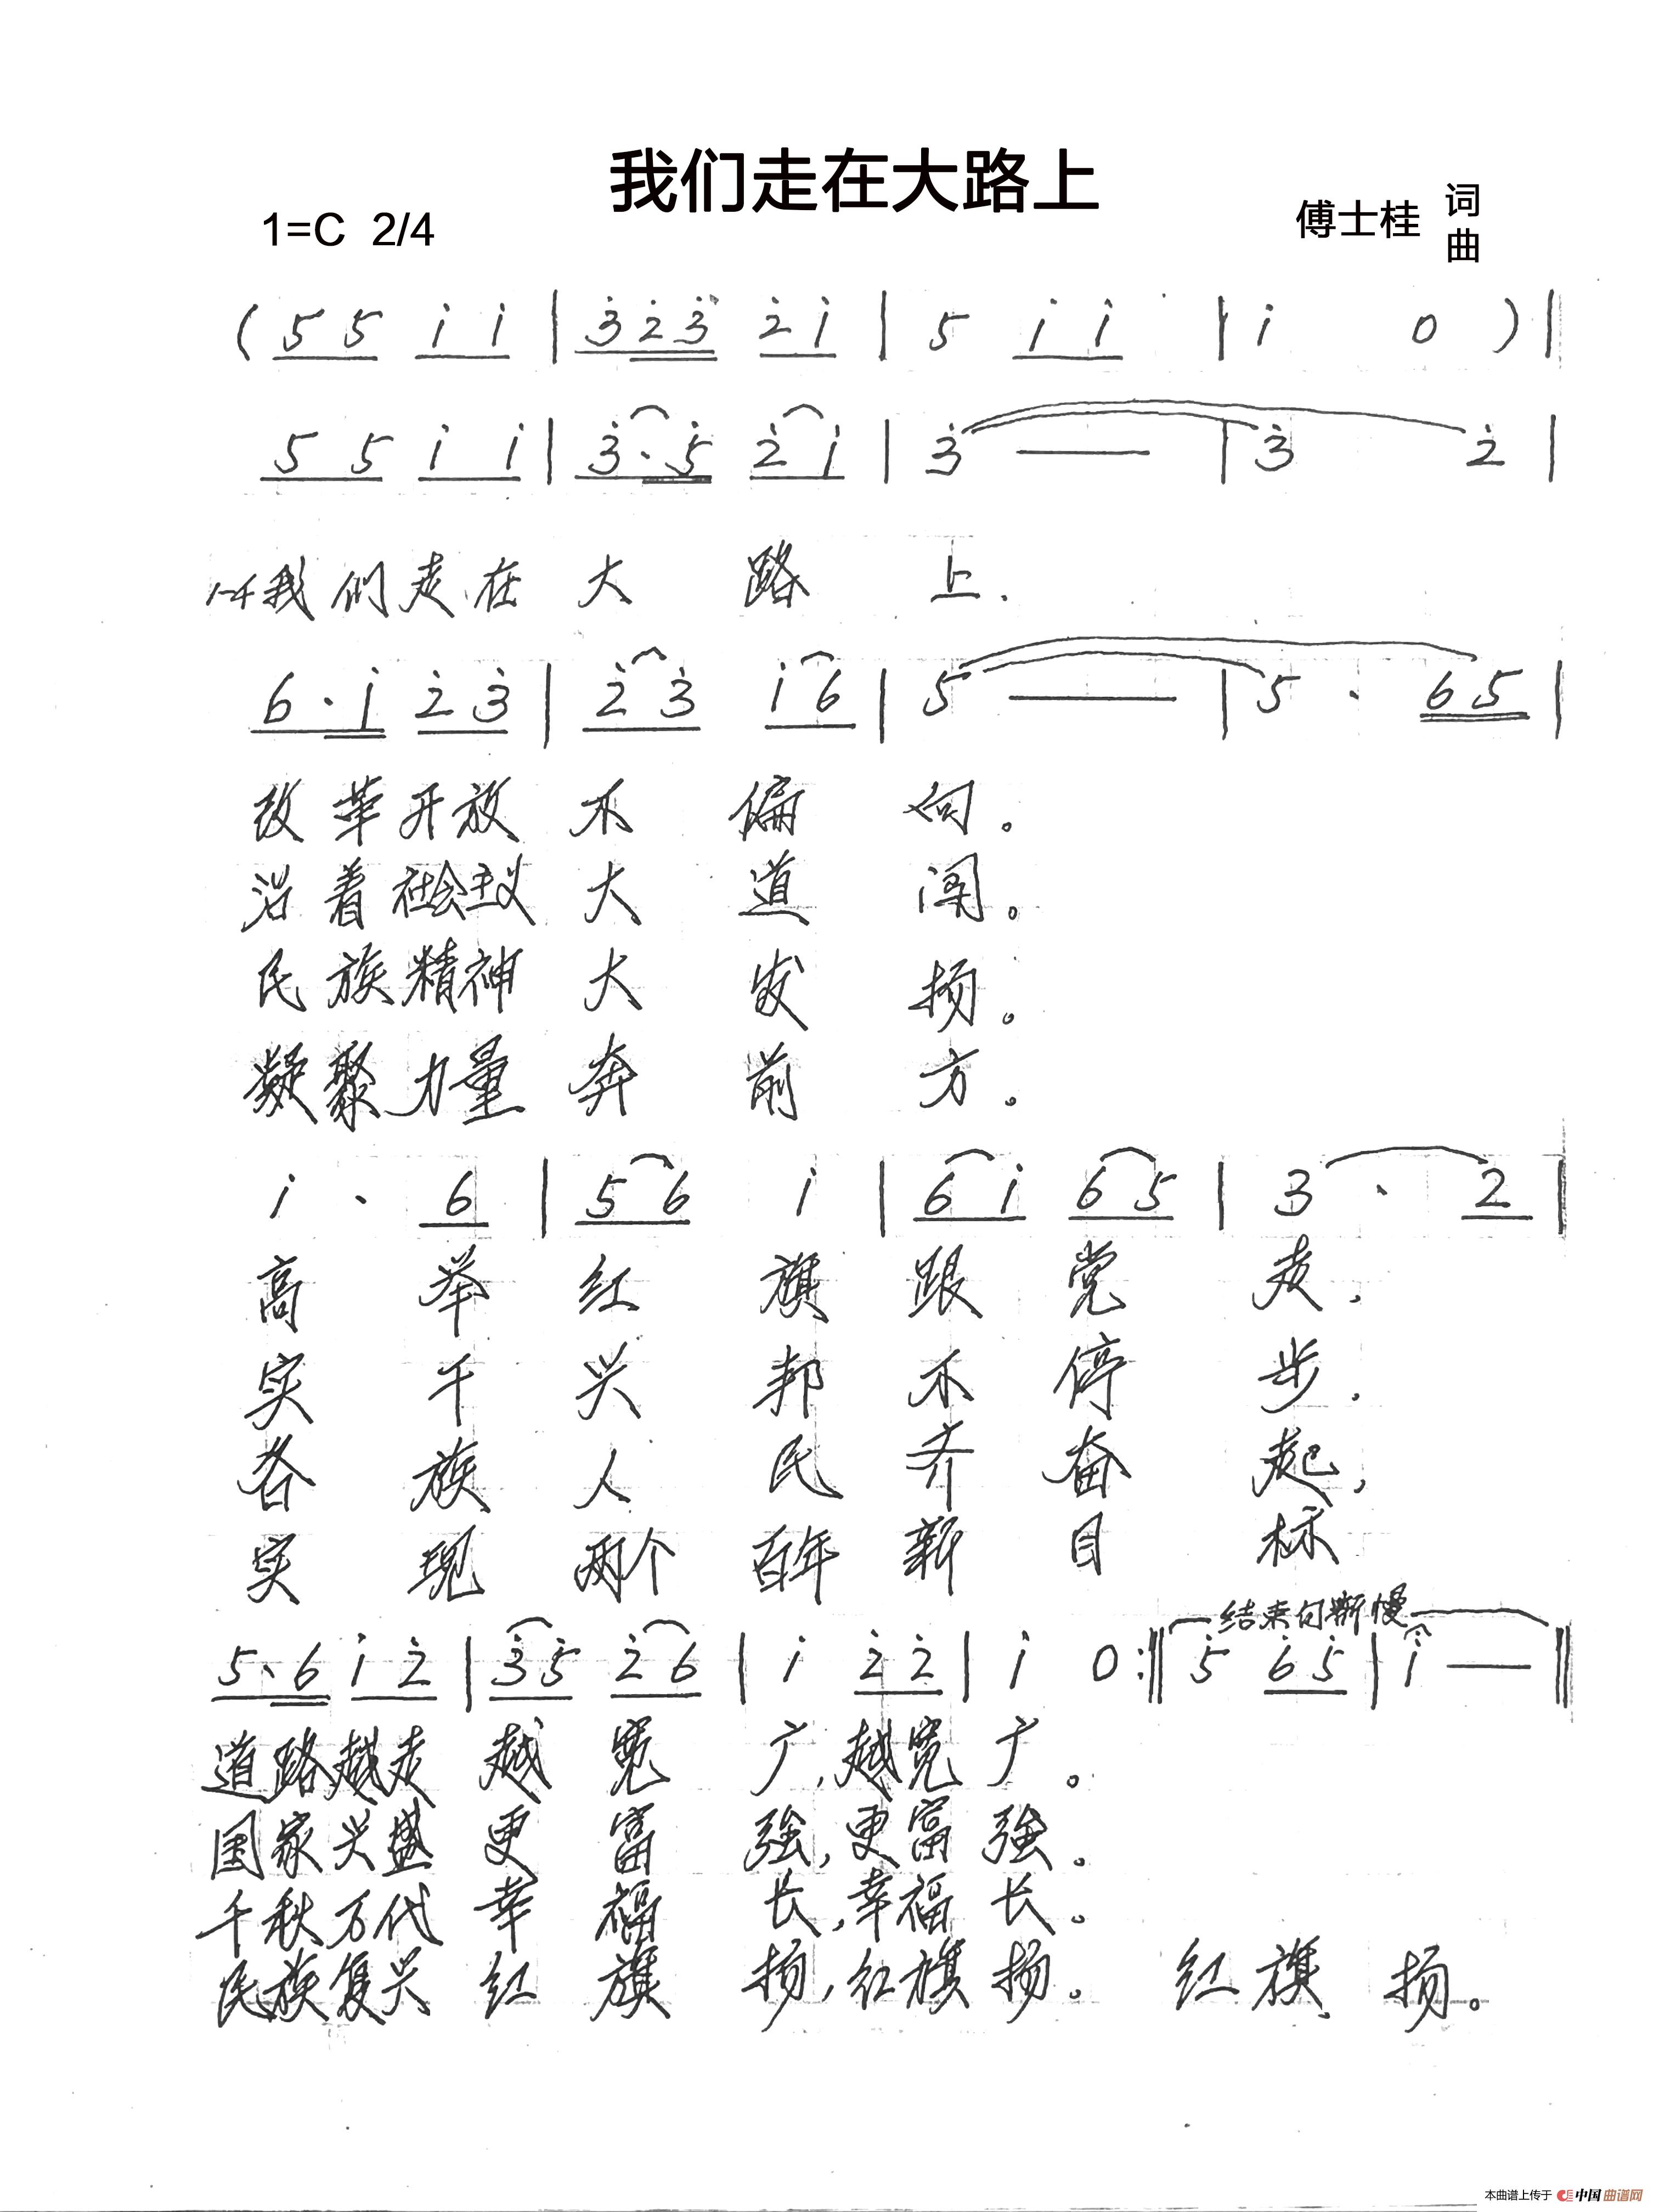 我们走在大路上
1=C 2/4
傅士桂 词
曲
( 5 5 i i | 3̇ 2̇ 3̇ 2̇ i | 5 i i | i 0 ) |
5 5 i i | 3̇ · 5̇ 2̇ i | 3̇ — | 3̇ 2̇ |
1-4我们走在大路上.
6 · i 2̇ 3̇ | 2̇ 3̇ i 6 | 5 — | 5 · 6 5 |
改革开放不偏向。
沿着社会主义大道闯。
民族精神大发扬。
凝聚力量奔前方。
i · 6 | 5 6 i | 6 i 6 5 | 3 · 2 |
高举红旗跟党走,
实干兴邦不停步.
各族人民齐奋起,
实现两个百年新目标
结束句渐慢
5 · 6 i 2̇ | 3̇ 5̇ 2̇ 6 | i 2̇ 2̇ | i 0 :‖ 5̇ 6̇ 5̇ | i — ‖
道路越走越宽广,越宽广。
国家兴盛更富強,更富強。
千秋万代幸福长,幸福长。
民族复兴红旗扬,红旗扬。红旗扬。
本曲谱上传于 中国曲谱网